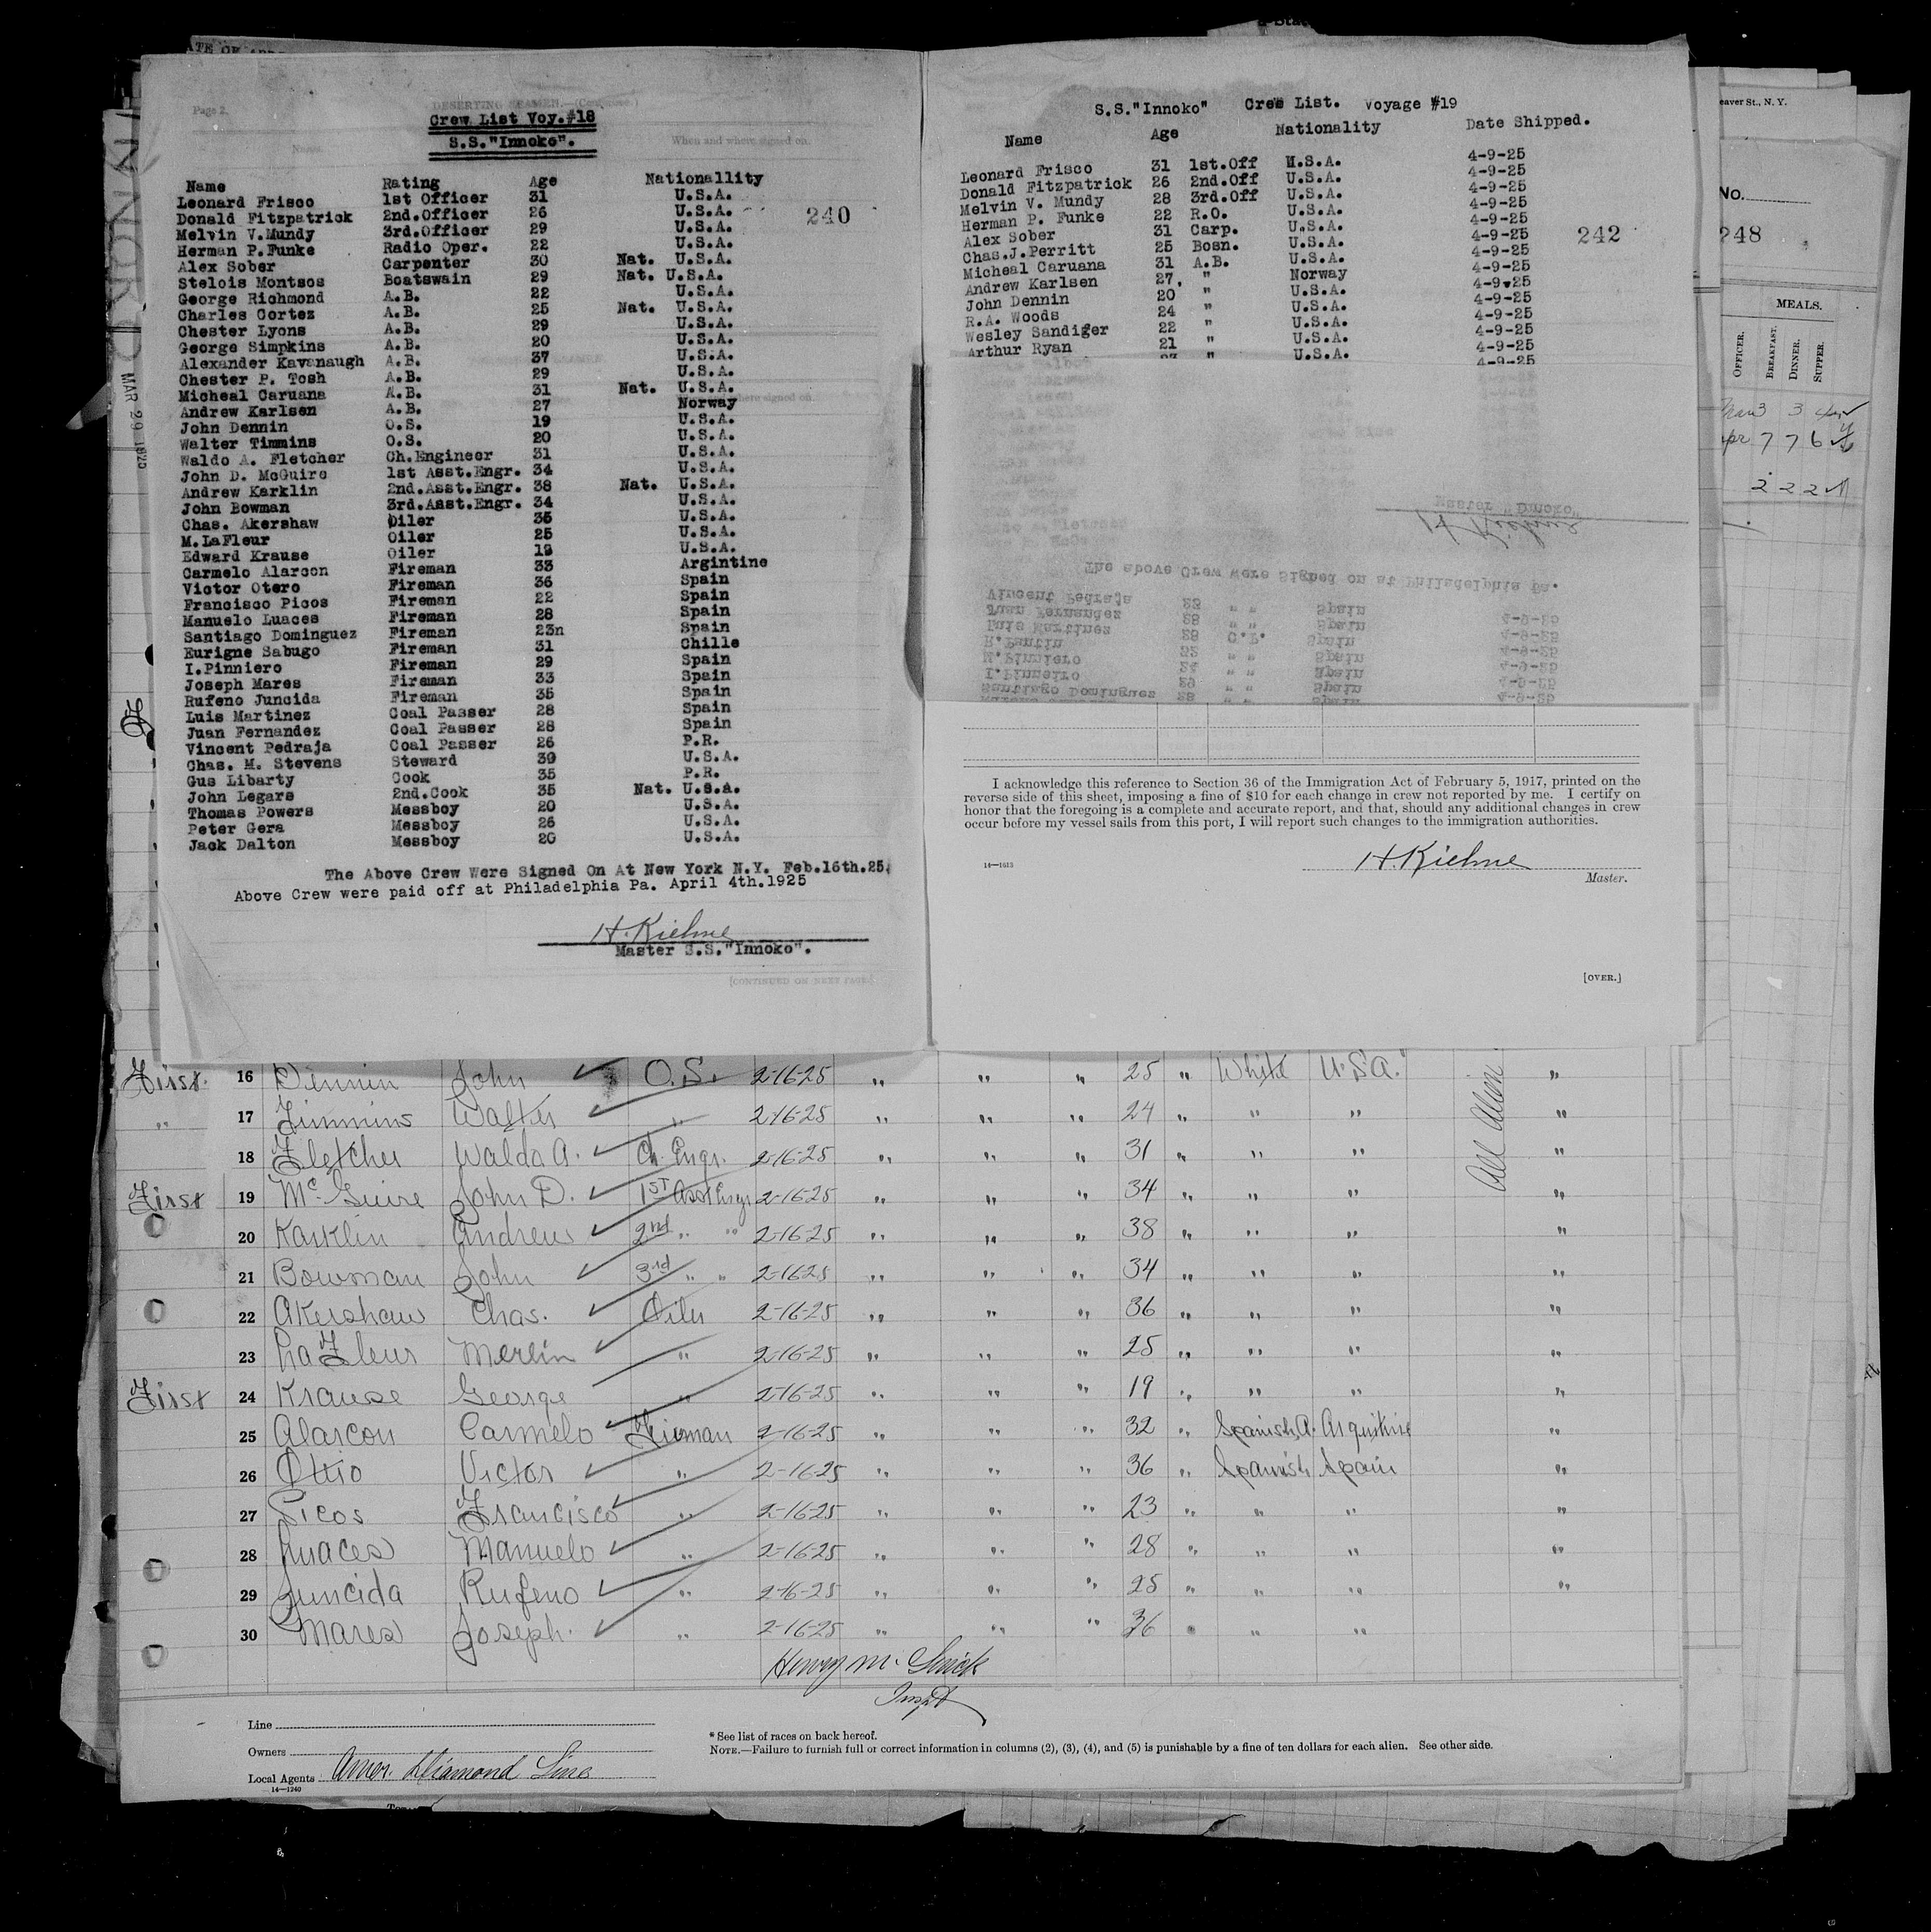 Page 2.
Crew List Voy.#18
S.S."Innoko".
When and where signed on.
Name Rating Age Nationallity
Leonard Frisco 1st Officer 31 U.S.A.
Donald Fitzpatrick 2nd.Officer 26 U.S.A.
240
Melvin V.Mundy 3rd.Officer 29 U.S.A.
Herman P.Funke Radio Oper. 22 U.S.A.
Alex Sober Carpenter 30 Nat. U.S.A.
Stelois Montsos Boatswain 29 Nat. U.S.A.
George Richmond A.B. 22 U.S.A.
Charles Cortez A.B. 25 Nat. U.S.A.
Chester Lyons A.B. 29 U.S.A.
George Simpkins A.B. 20 U.S.A.
Alexander Kavanaugh A.B. 37 U.S.A.
Chester P. Tosh A.B. 29 U.S.A.
Micheal Caruana A.B. 31 Nat. U.S.A.
Andrew Karlsen A.B. 27 Norway
John Dennin O.S. 19 U.S.A.
Walter Timmins O.S. 20 U.S.A.
Waldo A. Fletcher Ch.Engineer 31 U.S.A.
John D. McGuire 1st Asst.Engr. 34 U.S.A.
Andrew Karklin 2nd.Asst.Engr. 38 Nat. U.S.A.
John Bowman 3rd.Asst.Engr. 34 U.S.A.
Chas. Akershaw Oiler 36 U.S.A.
M.LaFleur Oiler 25 U.S.A.
Edward Krause Oiler 19 U.S.A.
Carmelo Alarcon Fireman 33 Argintine
Victor Otero Fireman 36 Spain
Francisco Picos Fireman 22 Spain
Manuelo Luaces Fireman 28 Spain
Santiago Dominguez Fireman 23n Spain
Eurigne Sabugo Fireman 31 Chille
I.Pinniero Fireman 29 Spain
Joseph Mares Fireman 33 Spain
Rufeno Juncida Fireman 35 Spain
Luis Martinez Coal Passer 28 Spain
Juan Fernandez Coal Passer 28 Spain
Vincent Pedraja Coal Passer 26 P.R.
Chas. M. Stevens Steward 39 U.S.A.
Gus Libarty Cook 35 P.R.
John Legare 2nd.Cook 35 Nat. U.S.A.
Thomas Powers Messboy 20 U.S.A.
Peter Gera Messboy 26 U.S.A.
Jack Dalton Messboy 20 U.S.A.
The Above Crew Were Signed On At New York N.Y. Feb.16th.25.
Above Crew were paid off at Philadelphia Pa. April 4th.1925
H. Kiehne
Master S.S."Innoko".
[CONTINUED ON NEXT PAGE]
S.S."Innoko" Cree List. Voyage #19
Name Age Nationality Date Shipped.
Leonard Frisco 31 1st.Off U.S.A. 4-9-25
Donald Fitzpatrick 26 2nd.Off U.S.A. 4-9-25
Melvin V. Mundy 28 3rd.Off U.S.A. 4-9-25
Herman P. Funke 22 R.O. U.S.A. 4-9-25
Alex Sober 31 Carp. U.S.A. 4-9-25
Chas.J.Perritt 25 Bosn. U.S.A. 4-9-25
242
Micheal Caruana 31 A.B. U.S.A. 4-9-25
Andrew Karlsen 27, " Norway 4-9-25
John Dennin 20 " U.S.A. 4-9-25
R.A. Woods 24 " U.S.A. 4-9-25
Wesley Sandifer 22 " U.S.A. 4-9-25
Arthur Ryan 21 " U.S.A. 4-9-25
27 " U.S.A. 4-9-25
Master "Innoko"
H Kiehne
The above Crew Were Signed on at Philadelphia Pa.
Vincent Pedraja 23 " " Spain
Juan Fernandez 28 " " Spain 4-9-25
Luis Martines 28 C.P. Spain 4-9-25
R.Pantin 4-9-25
M.Pinniero " " Spain 4-9-25
I.Pinneiro 29 " " Spain 4-9-25
Santiago Domingues 28 " " Spain 4-9-25
I acknowledge this reference to Section 36 of the Immigration Act of February 5, 1917, printed on the
reverse side of this sheet, imposing a fine of $10 for each change in crew not reported by me. I certify on
honor that the foregoing is a complete and accurate report, and that, should any additional changes in crew
occur before my vessel sails from this port, I will report such changes to the immigration authorities.
14—1613
H. Kiehne
Master.
[OVER.]
eaver St., N. Y.
No.
248
MEALS.
OFFICER. BREAKFAST. DINNER. SUPPER.
Mar 3 3 4
Apr 7 7 6
2 2 2
INNOKO MAR 29 1925
First 16 Dennin John O.S. 2-16-25 " " " 25 " White U.S.A. "
" 17 Timmins Walter " 2-16-25 " " " 24 " " " "
18 Fletcher Waldo A. Ch. Engr. 2-16-25 " " " 31 " " " "
First 19 McGuire John D. 1st Asst Engr 2-16-25 " " " 34 " " " "
20 Karklin Andrew 2nd " " 2-16-25 " " " 38 " " " "
21 Bowman John 3rd " " 2-16-25 " " " 34 " " " "
22 Akershaw Chas. Oiler 2-16-25 " " " 36 " " " "
23 LaFleur Merlin " 2-16-25 " " " 25 " " " "
First 24 Krause George " 2-16-25 " " " 19 " " " "
25 Alarcon Carmelo Fireman 2-16-25 " " " 32 " Spanish A. Argentine "
26 Otero Victor " 2-16-25 " " " 36 " Spanish Spain "
27 Picos Francisco " 2-16-25 " " " 23 " " " "
28 Luaces Manuelo " 2-16-25 " " " 28 " " " "
29 Juncida Rufeno " 2-16-25 " " " 25 " " " "
30 Mares Joseph. " 2-16-25 " " " 36 " " "
Henry M.
Inspt
Line
Owners
Local Agents Amer. Diamond Line
14—1240
* See list of races on back hereof.
NOTE.—Failure to furnish full or correct information in columns (2), (3), (4), and (5) is punishable by a fine of ten dollars for each alien. See other side.